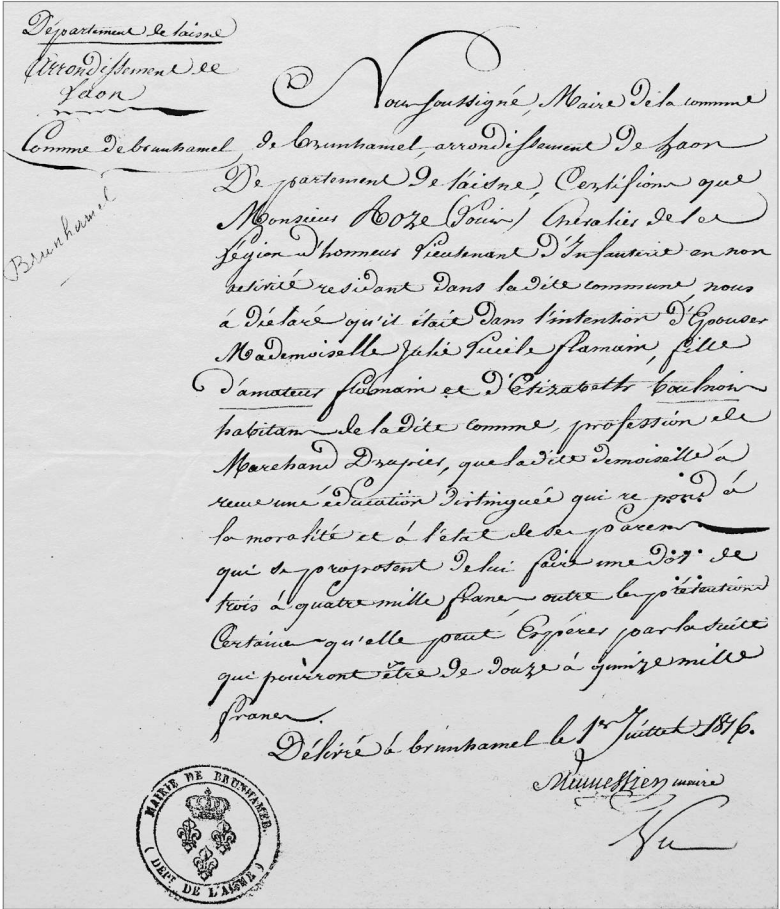 Département de laisne
Arrondissement de
Laon
Comme de brunhamel
Brunhamel
Nous soussigné, Maire de la commune
de brunhamel, arrondissement de Laon
Departement de l'aisne, Certifions que
Monsieur Roze (Louis) Chevalier de la
Légion d'honneur Lieutenant d'Infanterie en non
activité residant dans la dite commune nous
à déclaré qu'il était dans l'intention d'Epouser
Mademoiselle Julie Lucile flamain, fille
d'amateur flamain et d'Elizabeth
habitans de la dite comme, profession de
Marchand Drapier, que la dite demoiselle à
recue une éducation distinguée qui repond à
la moralité et à l'état de ses parens
qui se proposent de lui faire une dot de
trois à quatre mille francs outre les prétentions
Certaines qu'elle peut Espérer par la suite
qui pourront être de douze à quinze mille
francs.
Délivré à brunhamel le 1er Juillet 1816.
maire
Vu
MAIRIE DE BRUNHAMEL
(DEPT. DE L'AISNE)